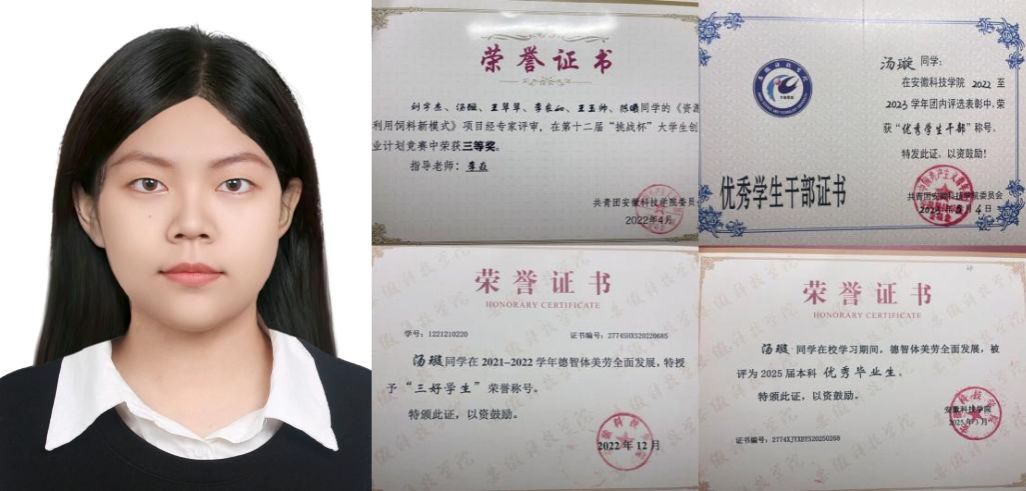 荣誉证书
刘宇杰、汤璇、王翠翠、李家如、王玉帅、陈曦同学的《资源
利用饲料新模式》项目经专家评审，在第十二届“挑战杯”大学生创
业计划竞赛中荣获三等奖。
指导老师：李磊
共青团安徽科技学院委员会
2022年4月
汤璇 同学：
在安徽科技学院 2022 至
2023 学年团内评选表彰中，荣
获“优秀学生干部”称号。
特发此证，以资鼓励！
优秀学生干部证书
共青团安徽科技学院委员会
月4日
荣誉证书
HONORARY CERTIFICATE
学号：1221210220
证书编号：2774SHXS20220685
汤璇同学在 2021-2022 学年德智体美劳全面发展，特授
予“三好学生”荣誉称号。
特颁此证，以资鼓励。
2022 年 12 月
荣誉证书
HONORARY CERTIFICATE
汤璇 同学在校学习期间，德智体美劳全面发展，被
评为 2025 届本科 优秀毕业生。
特颁此证，以资鼓励。
安徽科技学院
2025年3月
证书编号：2774XJYXBYS20250268